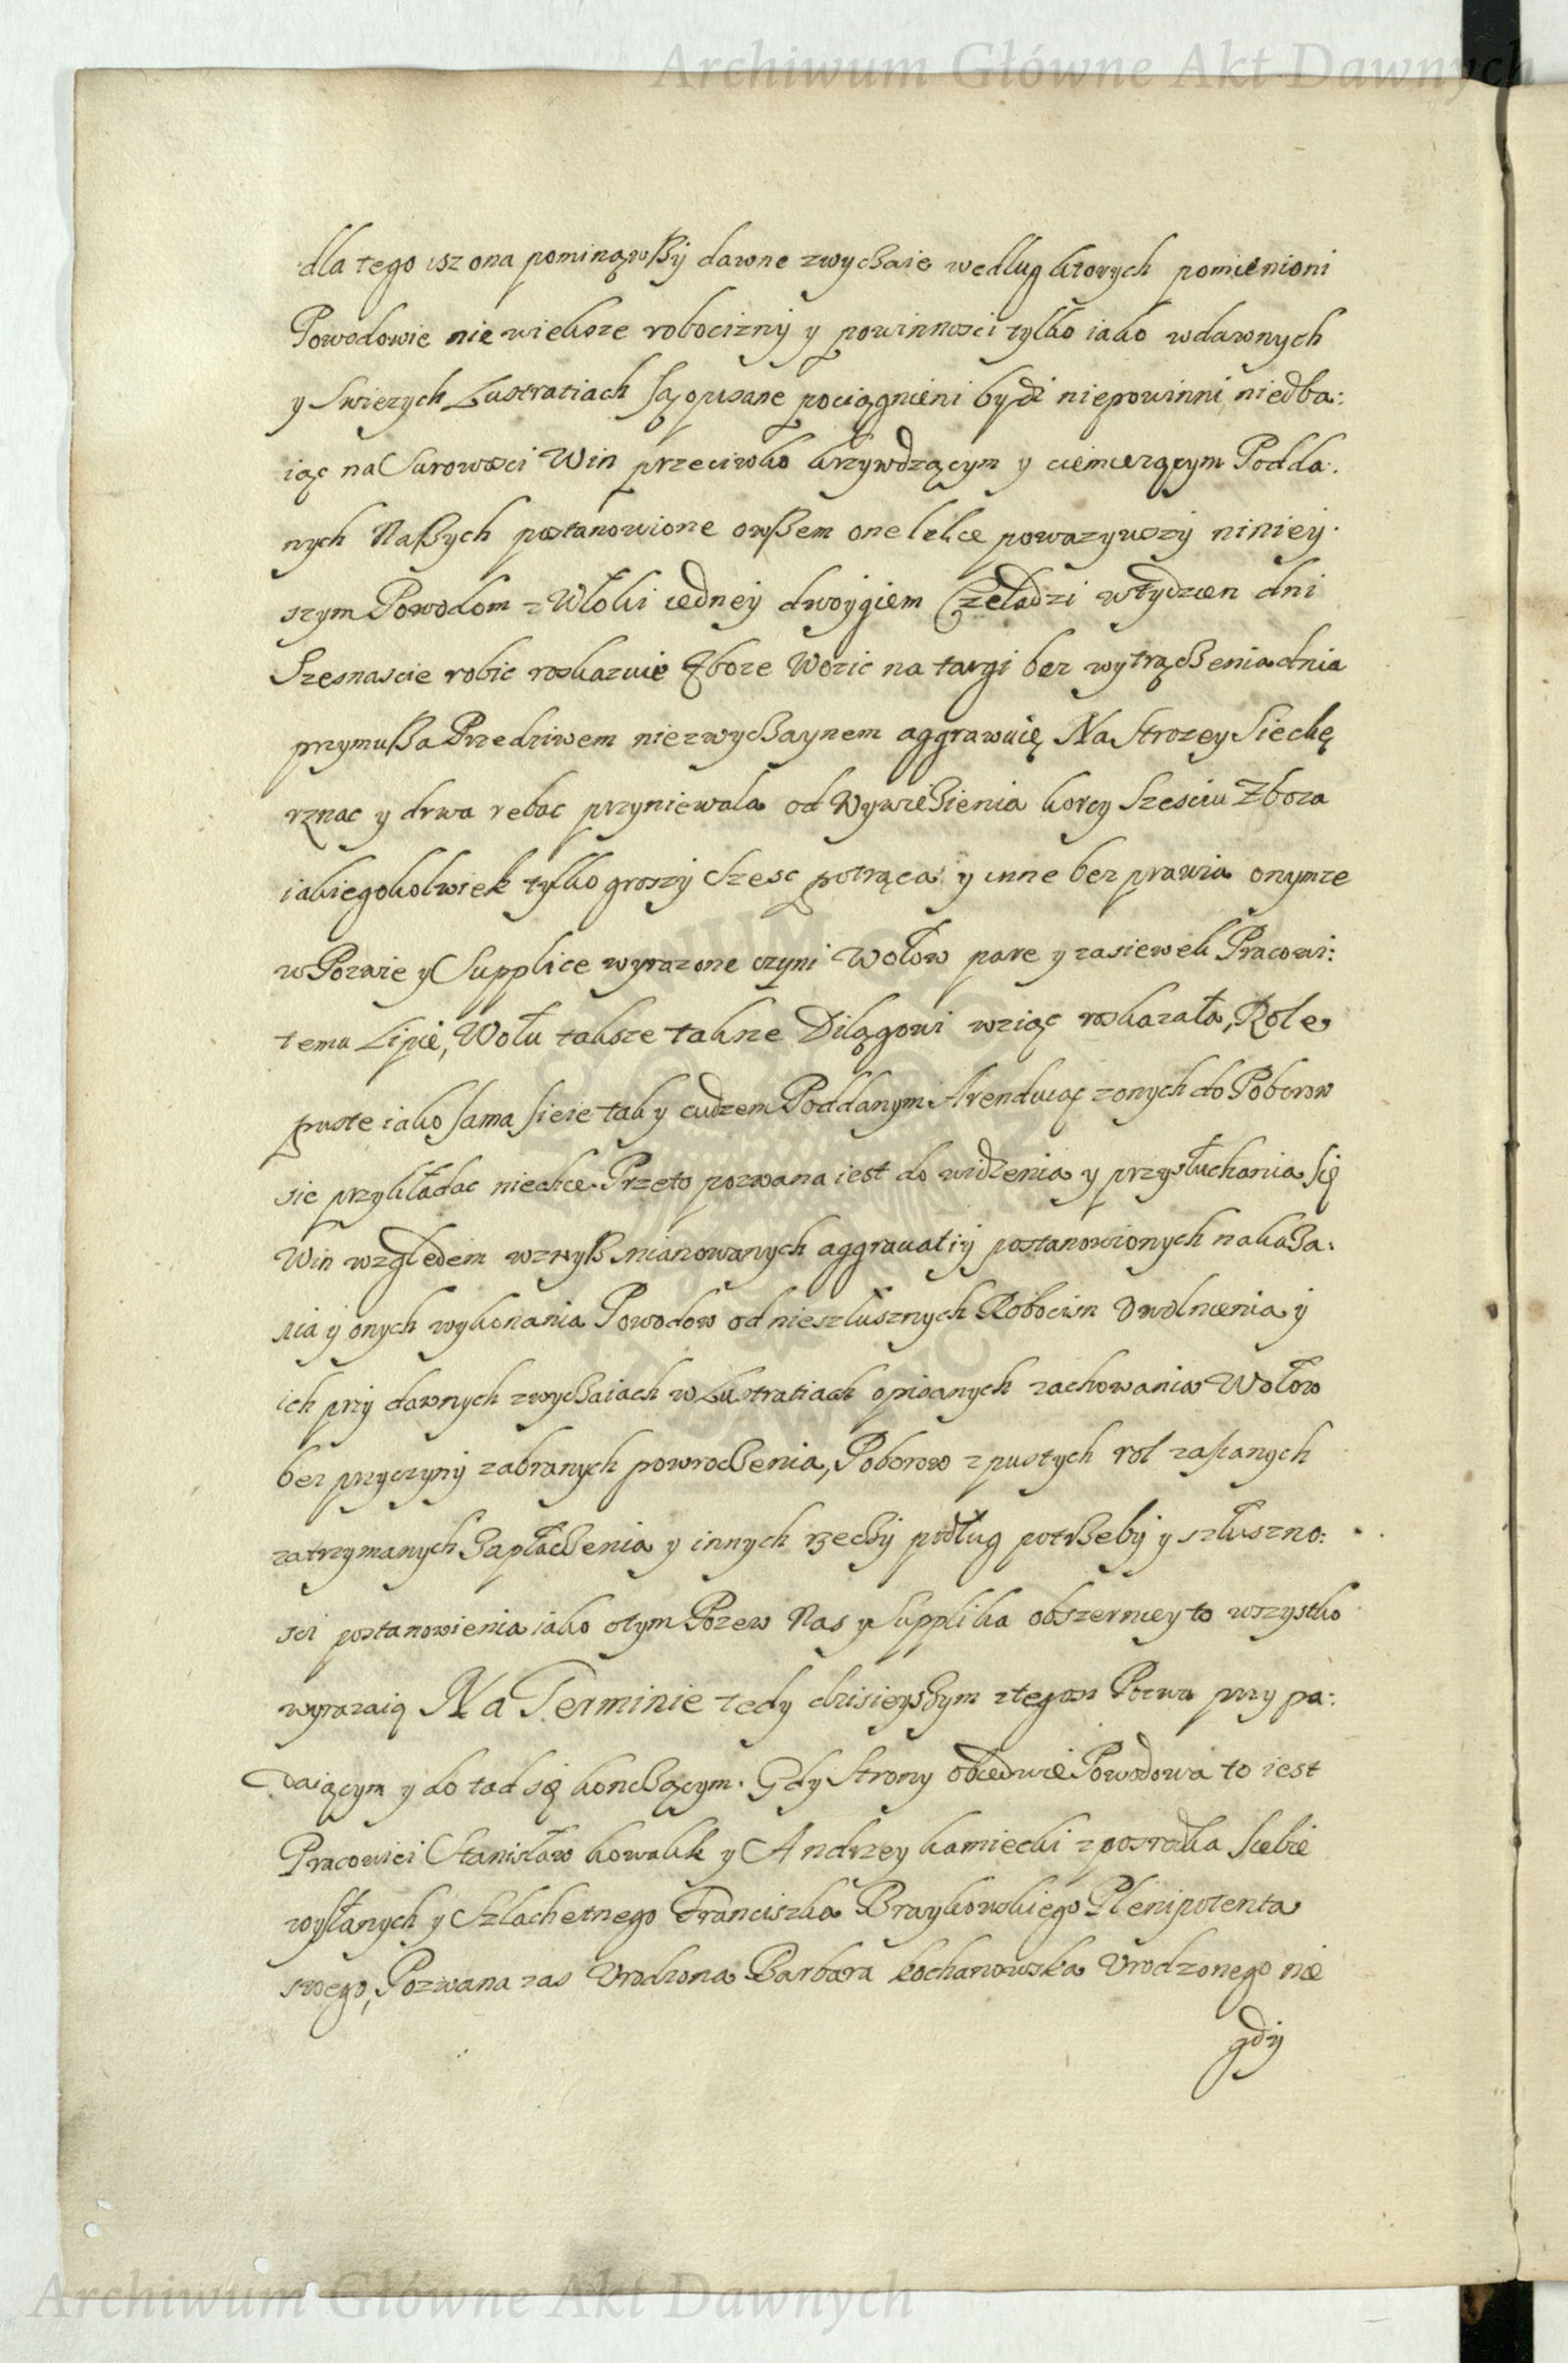 Archiwum Główne Akt Dawnych
dla tego isz ona pominąwszy dawne zwyczaie według ktorych pomienioni
Powodowie nie wieksze robocizny y powinnosci tylko iako w dawnych
y Swiezych Lustratiach są opisane pociągnieni bydź niepowinni, niedba:
iąc na Surowosci Win przeciwko krzywdzącym y ciemiezącym Podda:
nych Naszych postanowione owszem one lekce powazywszy niniey:
szym Powodom z Włoki iedney dwoygiem Czeladzi w tydzien dni
Szesnascie robic roskazuie Zboze Wozic na targi bez wytrączenia dnia
przymusza Przedziwem niezwyczaynem aggrawuię Na Strozey Sieckę
rznac y drwa rebac przyniewala od Wywiezienia korcy Szesciu Zboza
iakiegokolwiek tylko groszy Szesc potrąca y inne bezprawia onymze
w Pozwie y Supplice wyrazone czyni Wołow pare y zasiewek Pracowi:
temu Lipie, Wołu taksze takze Dilągowi wziąc roskazała, Role
puste iako sama sieie tak y cudzem Poddanym Arenduiąc z onych do Poborow
sie przykładac niechce. Przeto pozwana iest do widzenia y przysłuchania się
Win względem wzwysz mianowanych aggrauatiy postanowionych nakaza:
nia y onych wykonania Powodow od nieszlusznych Robocizn Uwolnienia y
ich przy dawnych zwyczaiach w Lustratiach opisanych zachowania Wołow
bez przyczyny zabranych powroczenia, Poborow z pustych rol zasianych
zatrzymanych Zapłaczenia y innych rzeczy podług potrzeby y szłuszno:
sci postanowienia iako o tym Pozew Nas y Supplika obszerniey to wszystko
wyrazaią Na Terminie tedy dzisieyszym z tegosz Pozwu przypa:
daiącym y do tad się konczącym. Gdy Strony obiedwie Powodowa to iest
Pracowici Stanisław kowalik y Andrzey kamiecki z posrodka siebie
wysłanych y Szlachetnego Franciszka Braykowskiego Plenipotenta
swego, Pozwana zas Urodzona Barbara kochanowska Urodzonego nie
gdy
Archiwum Główne Akt Dawnych